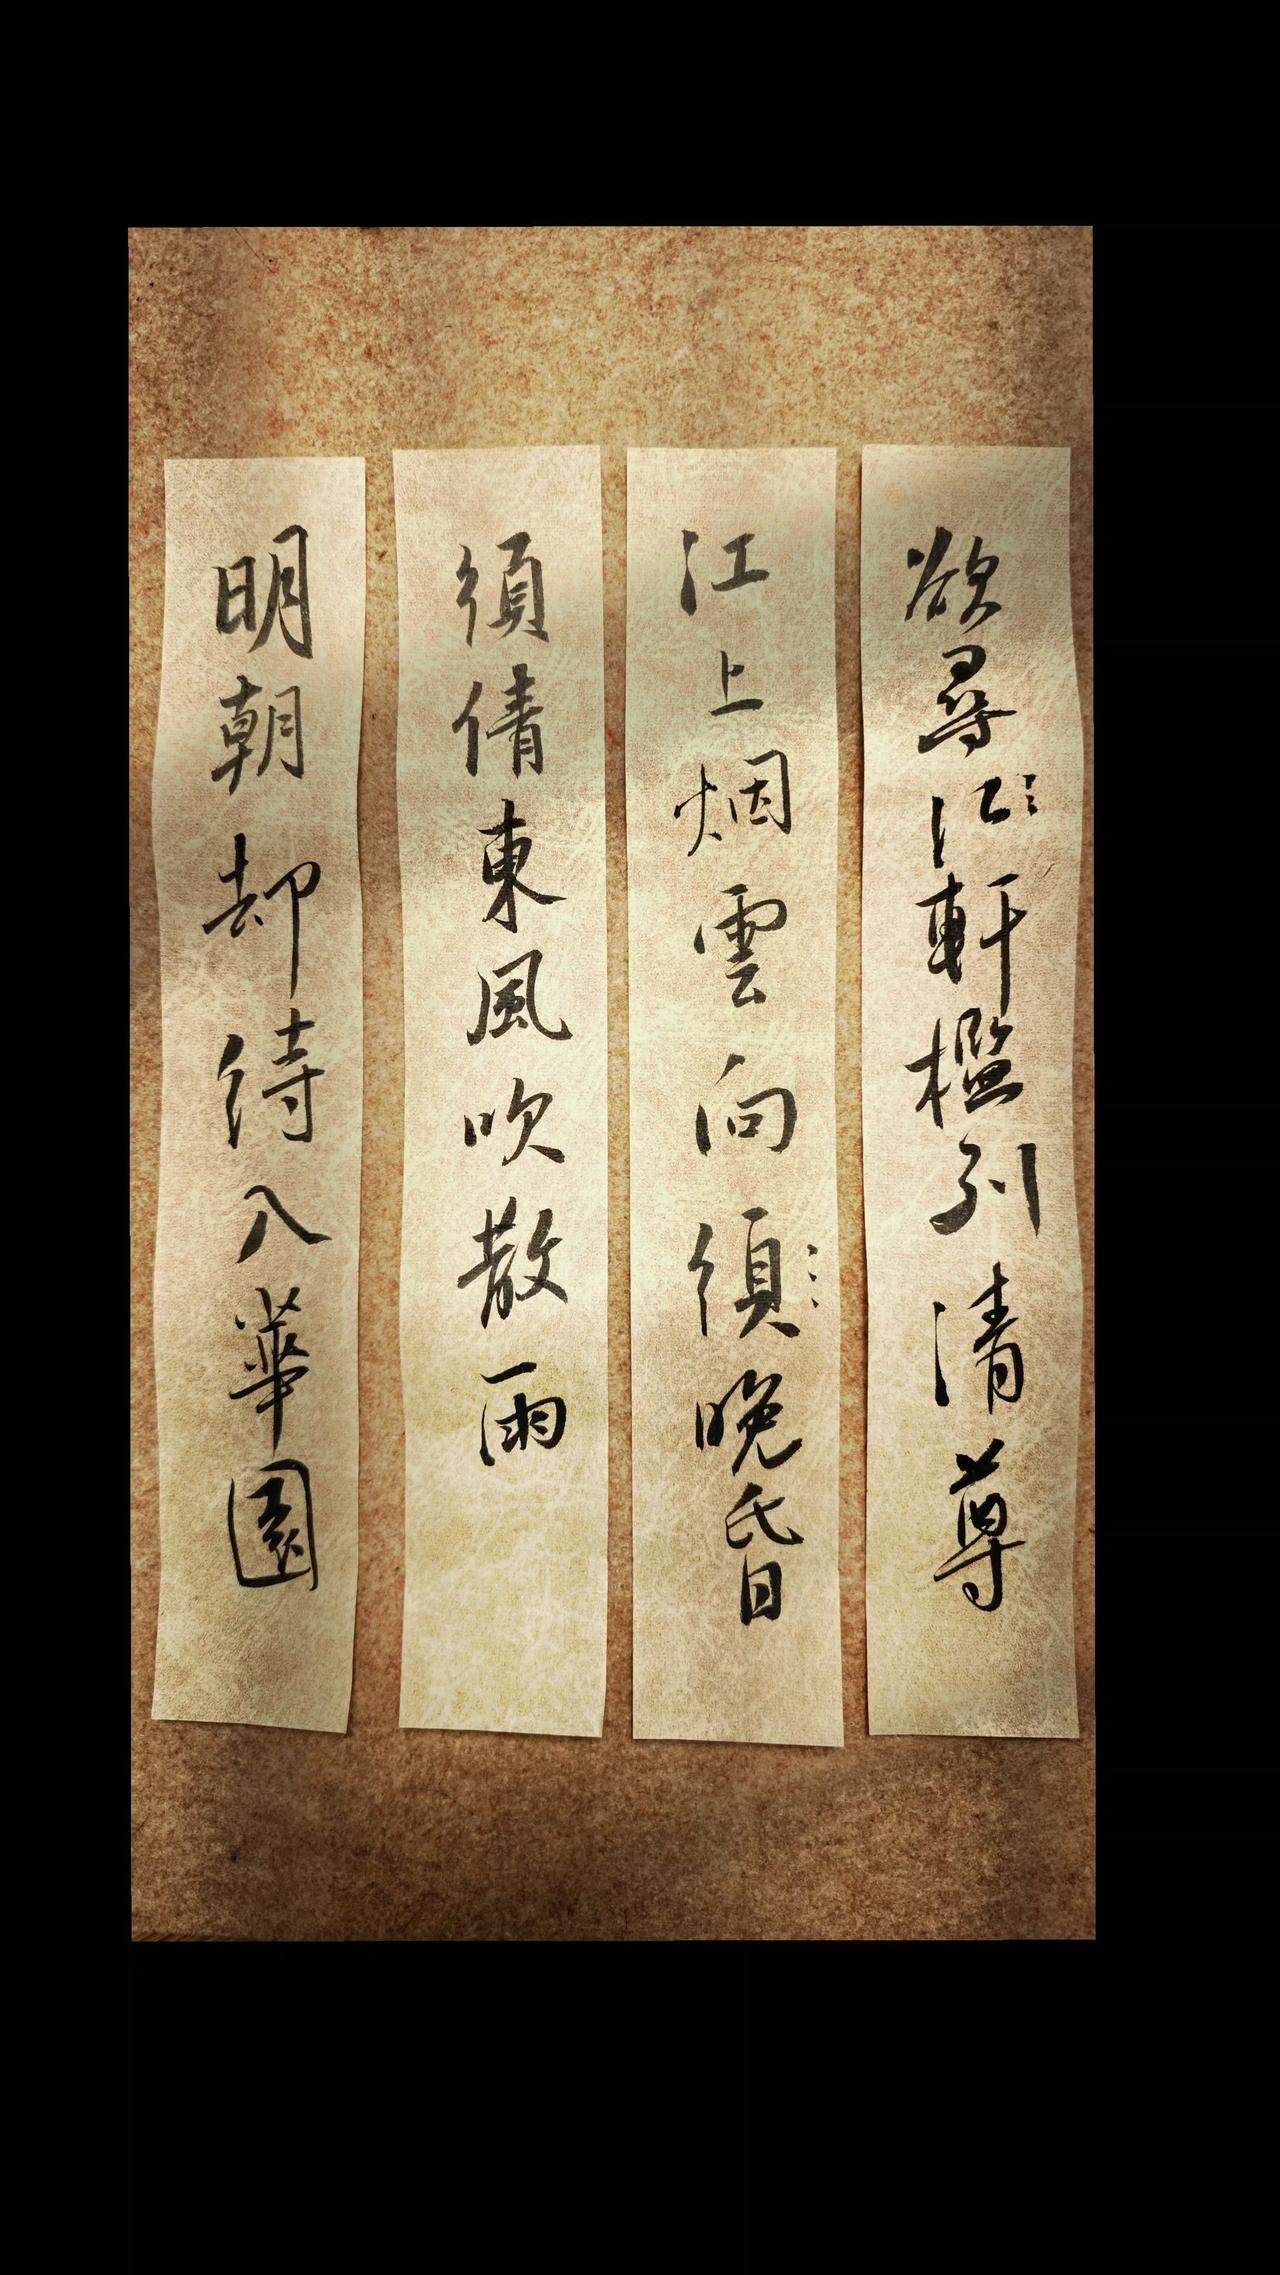 欲尋江軒檻列清尊
江上烟雲向須晚昏
須倩東風吹散雨
明朝却待入華園